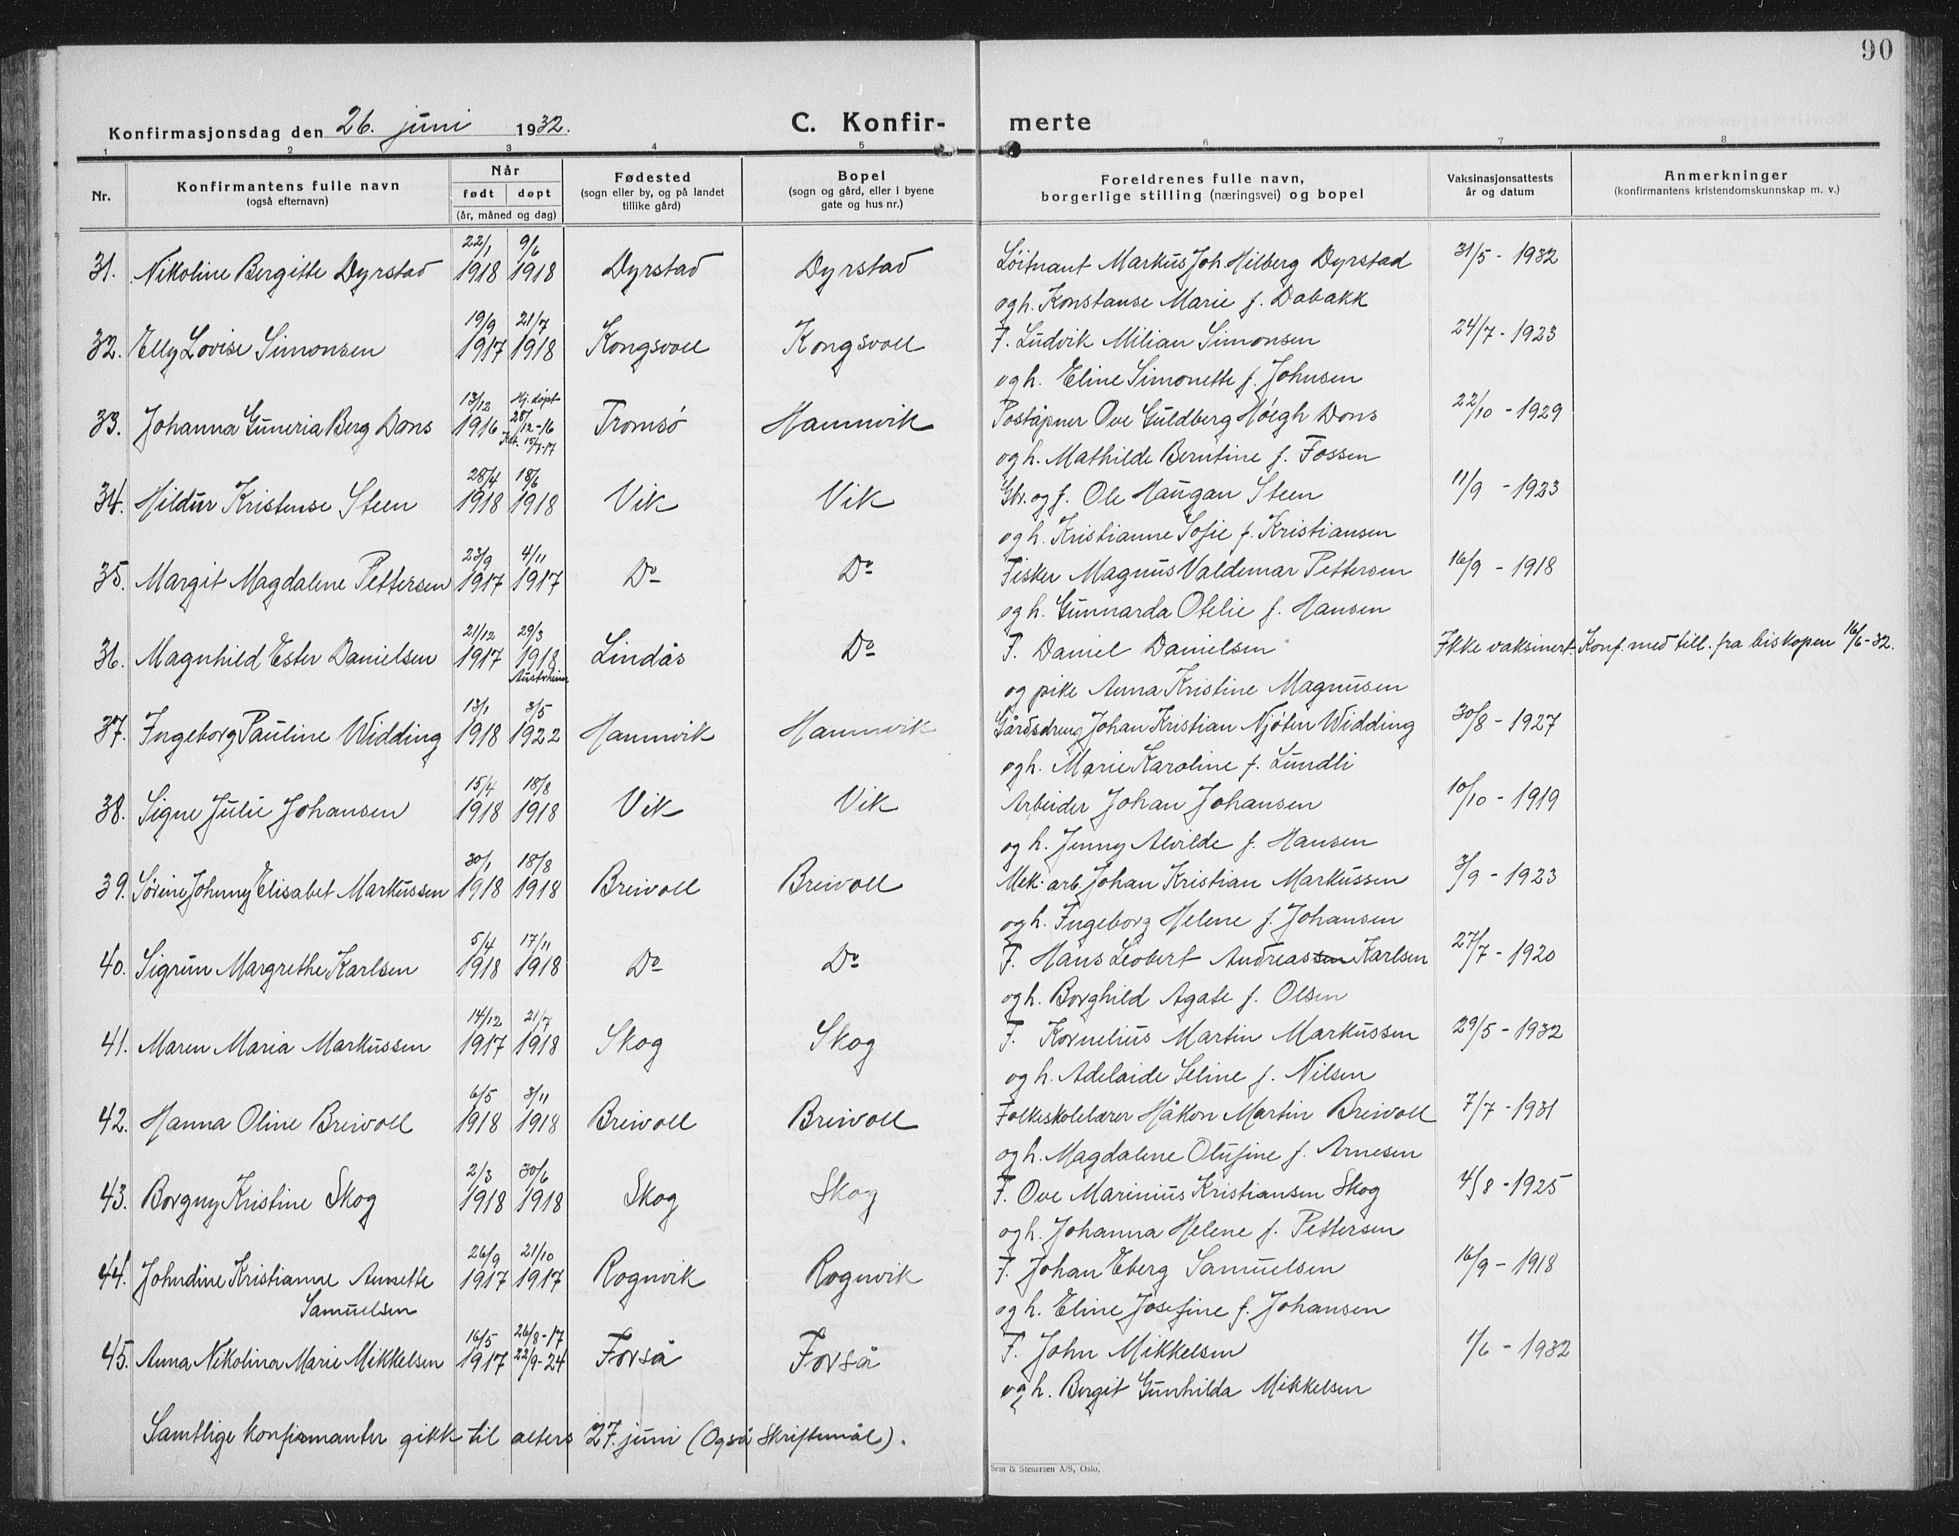 90
Konfirmasjonsdag den 26. juni 1932.
C. Konfir- merte
1 2 3 4 5 6 7 8
Nr. Konfirmantens fulle navn (også efternavn) Når født døpt (år, måned og dag) Fødested (sogn eller by, og på landet tillike gård) Bopel (sogn og gård, eller i byene gate og hus nr.) Foreldrenes fulle navn, borgerlige stilling (næringsvei) og bopel Vaksinasjonsattests år og datum Anmerkninger (konfirmantens kristendomskunnskap m. v.)
31. Nikoline Bergitte Dyrstad 22/1 1918 9/6 1918 Dyrstad Dyrstad Löitnant Markus Joh. Hilberg Dyrstad 31/5 - 1932
og h. Konstanse Marie f. Dabakk
32. Elly Lovise Simonsen 19/9 1917 21/7 1918 Kongsvoll Kongsvoll F. Ludvik Milian Simonsen 24/7 - 1923
og h. Eline Simonette f. Johnsen
33. Johanna Guneria Berg Dons 13/12 1916 Hj. døpt 28/12-16 15/7-17 Tromsö Hamnvik Poståpner Ove Guldberg Höegh Dons 22/10 - 1929
og h. Mathilde Berntine f. Fossen
34. Hildur Kristense Steen 28/4 1918 18/6 1918 Vik Vik Gbr. og f. Ole Haugan Steen 11/9 - 1923
og h. Kristianne Sofie f. Kristiansen
35. Margit Magdalene Pettersen 23/9 1917 4/11 1917 Do Do Fisker Magnus Valdemar Pettersen 16/9 - 1918
og h. Gunnarda Otelie f. Hansen
36. Magnhild Ester Danielsen 21/12 1917 29/3 1918 Austrheim Lindås Do F. Daniel Danielsen Ikke vaksinert. Konf. med till. fra biskopen 16/6-32.
og pike Anna Kristine Magnusen
37. Ingeborg Pauline Widding 13/1 1918 3/5 1922 Hamnvik Hamnvik Gårdsdreng Johan Kristian Njöten Widding 30/8 - 1927
og h. Marie Karoline f. Lundli
38. Signe Julie Johansen 15/4 1918 18/8 1918 Vik Vik Arbeider Johan Johansen 10/10 - 1919
og h. Jenny Alvilde f. Hansen
39. Sörine Johnny Elisabet Markussen 30/1 1918 18/8 1918 Breivoll Breivoll Mek. arb. Johan Kristian Markussen 3/9 - 1923
og h. Ingeborg Helene f. Johansen
40. Sigrun Margrethe Karlsen 5/4 1918 17/11 1918 Do Do F. Hans Leobert Andreassen Karlsen 27/7 - 1920
og h. Borghild Agate f. Olsen
41. Maren Maria Markussen 14/12 1917 21/7 1918 Skog Skog F. Kornelius Martin Markussen 29/5 - 1932
og h. Adelaide Seline f. Nilsen
42. Hanna Oline Breivoll 6/5 1918 3/11 1918 Breivoll Breivoll Folkeskolelærer Håkon Martin Breivoll 7/7 - 1931
og h. Magdalene Olufine f. Arnesen
43. Borgny Kristine Skog 2/3 1918 30/6 1918 Skog Skog F. Ove Marinius Kristiansen Skog 4/8 - 1925
og h. Johanna Helene f. Pettersen
44. Johndine Kristianne Annette 26/9 1917 21/10 1917 Rognvik Rognvik F. Johan Eberg Samuelsen 16/9 - 1918
Samuelsen og h. Eline Josefine f. Johansen
45. Anna Nikolina Marie Mikkelsen 16/5 1917 26/8-17 22/9-24 Forså Forså F. John Mikkelsen 1/6 - 1932
og h. Bergit Gunhilda Mikkelsen
Samtlige konfirmanter gikk til alters 27. juni (Også Skriftemål).
Sem & Stenersen A/S, Oslo.